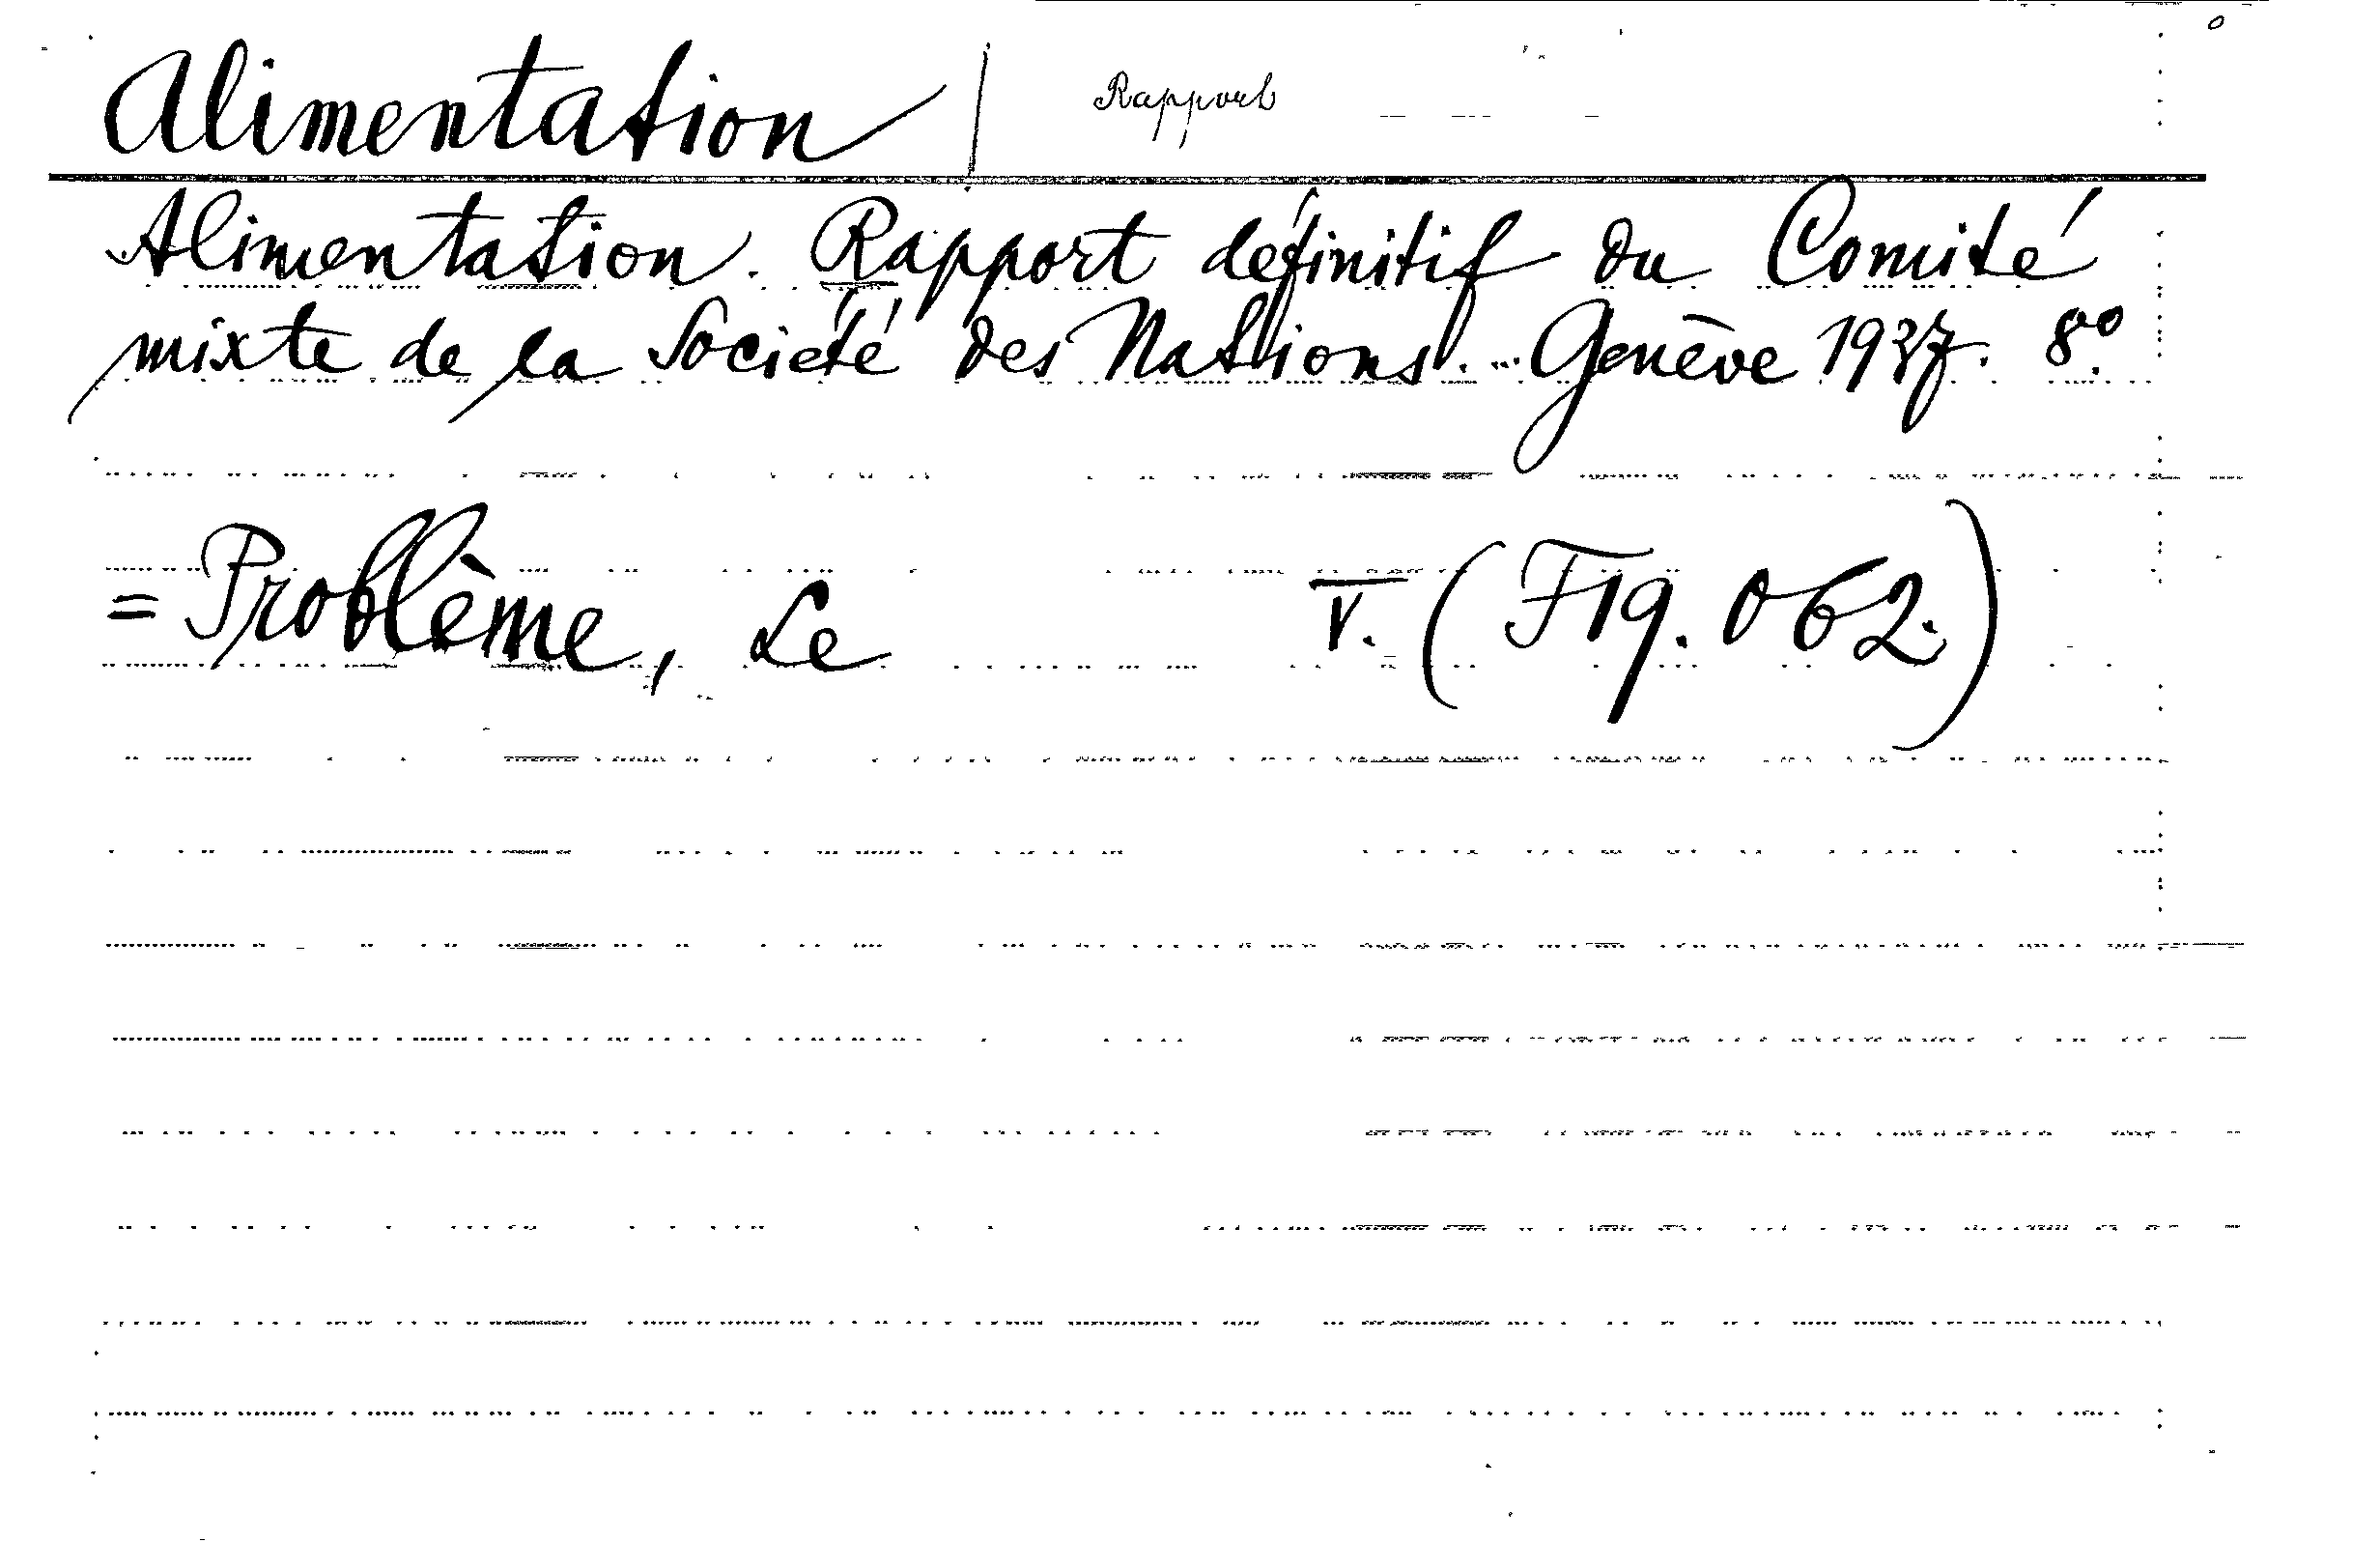 Alimentation / Rapport
Alimentation. Rapport définitif du Comité
mixte de la Société des Nations. Genève 1937. 8º.
= Problème, Le V. (Fig. 062.)